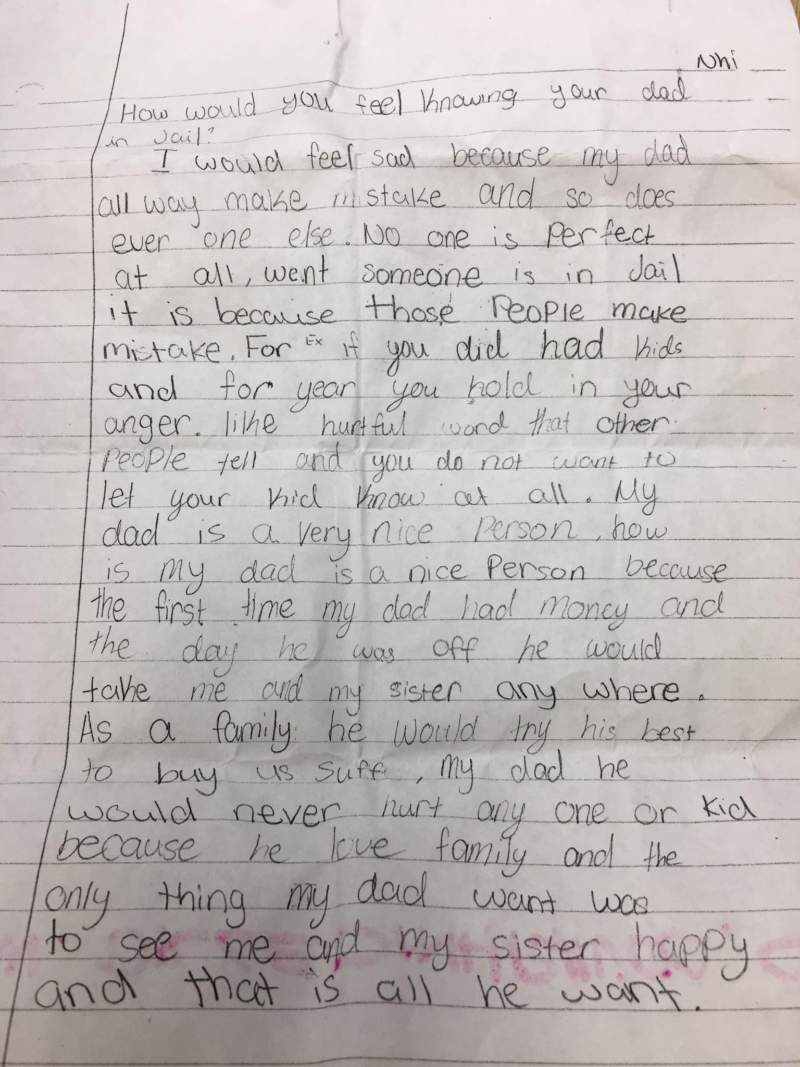 Nhi
How would you feel knowing your dad
in Jail?
I would feel sad because my dad
all way make mistake and so does
ever one else. No one is perfect
at all, went someone is in Jail
it is because those People make
mistake. For Ex if you did had kids
and for year you hold in your
anger. like hurtful word that other
People tell and you do not want to
let your kid know at all. My
dad is a very nice Person, how
is my dad is a nice Person because
the first time my dad had money and
the day he was off he would
take me and my sister any where.
As a family he would try his best
to buy us suff, my dad he
would never hurt any one or kid
because he love family and the
only thing my dad want was
to see me and my sister happy
and that is all he want.